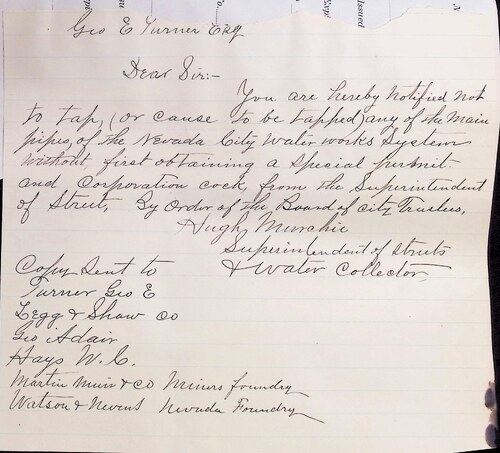 Geo E Turner Esq
Dear Sir:-
You are hereby notified not
to tap, (or cause to be tapped) any of the Main
pipes, of the Nevada City Water works System
without first obtaining a special permit
and Corporation cock, from the Superintendent
of Street, By Order of the Board of City Trustees,
Hugh Murchie
Superintendent of struts
& Water Collector.
Copy Sent to
Turner Geo E
Legg & Shaw Co
Geo Adair
Hays W. C.
Martin Muir & Co Miners foundry
Watson & Nevens Nevada Foundry